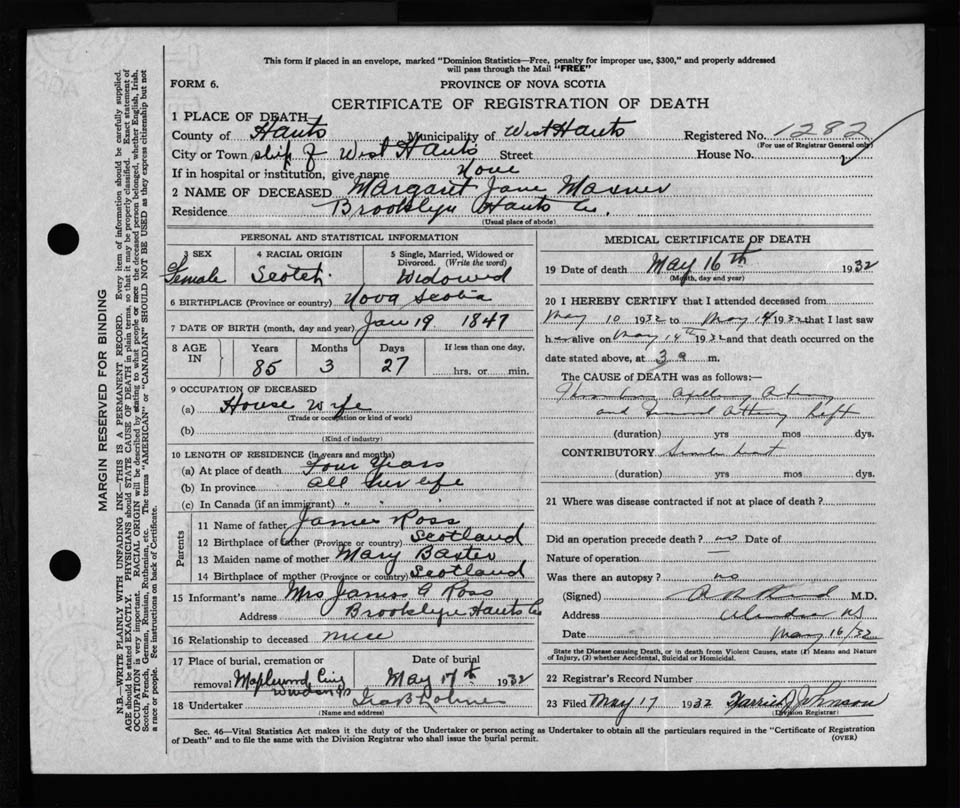 This form if placed in an envelope, marked "Dominion Statistics—Free, penalty for improper use, $300," and properly addressed
will pass through the Mail "FREE"
FORM 6.
PROVINCE OF NOVA SCOTIA
CERTIFICATE OF REGISTRATION OF DEATH
1 PLACE OF DEATH
County of Hants Municipality of West Hants Registered No. 1282
(For use of Registrar General only)
City or Town ship of West Hants Street House No. 2
If in hospital or institution, give name None
2 NAME OF DECEASED Margaret Jane
Residence Brooklyn Hants Co.
(Usual place of abode)
PERSONAL AND STATISTICAL INFORMATION
3 SEX 4 RACIAL ORIGIN 5 Single, Married, Widowed or
Divorced. (Write the word)
Female Scotch Widowed
6 BIRTHPLACE (Province or country) Nova Scotia
7 DATE OF BIRTH (month, day and year) Jan 19 1847
8 AGE IN Years Months Days If less than one day,
85 3 27 hrs. or min.
9 OCCUPATION OF DECEASED
(a) House wife
(Trade or occupation or kind of work)
(b)
(Kind of industry)
10 LENGTH OF RESIDENCE (in years and months)
(a) At place of death Four Years
(b) In province all her life
(c) In Canada (if an immigrant) " " "
Parents
11 Name of father James Ross
12 Birthplace of father (Province or country) Scotland
13 Maiden name of mother Mary Baxter
14 Birthplace of mother (Province or country) Scotland
15 Informant's name Mrs James G Ross
Address Brooklyn Hants Co
16 Relationship to deceased niece
17 Place of burial, cremation or Date of burial
removal Maplewood Cem May 17th 1932
Windsor
18 Undertaker
(Name and address)
MEDICAL CERTIFICATE OF DEATH
19 Date of death May 16th 1932
(Month, day and year)
20 I HEREBY CERTIFY that I attended deceased from
May 10 1932 to May 14 1932 that I last saw
her alive on May 14th 1932 and that death occurred on the
date stated above, at 3 a m.
The CAUSE OF DEATH was as follows:—
Artery
and Left
(duration) yrs mos dys.
CONTRIBUTORY
(duration) yrs mos dys.
21 Where was disease contracted if not at place of death?
Did an operation precede death? no Date of
Nature of operation —
Was there an autopsy? no
(Signed) M.D.
Address
Date May 16/32
State the Disease causing Death, or in death from Violent Causes, state (1) Means and Nature
of Injury, (2) whether Accidental, Suicidal or Homicidal.
22 Registrar's Record Number
23 Filed May 17 1932 Johnson
Division Registrar)
Sec. 46—Vital Statistics Act makes it the duty of the Undertaker or person acting as Undertaker to obtain all the particulars required in the "Certificate of Registration
of Death" and to file the same with the Division Registrar who shall issue the burial permit.
(OVER)
MARGIN RESERVED FOR BINDING
N.B.—WRITE PLAINLY WITH UNFADING INK—THIS IS A PERMANENT RECORD. Every item of information should be carefully supplied.
AGE should be stated EXACTLY. PHYSICIANS should STATE CAUSE OF DEATH in plain terms, so that it may be properly classified. Exact statement of
OCCUPATION is very important. RACIAL ORIGIN will be described by stating to what people or race the deceased person belonged, whether English, Irish,
Scotch, French, German, Russian, Ruthenian, etc. The terms "AMERICAN" or "CANADIAN" SHOULD NOT BE USED as they express citizenship but not
a race or people. See instructions on back of Certificate.